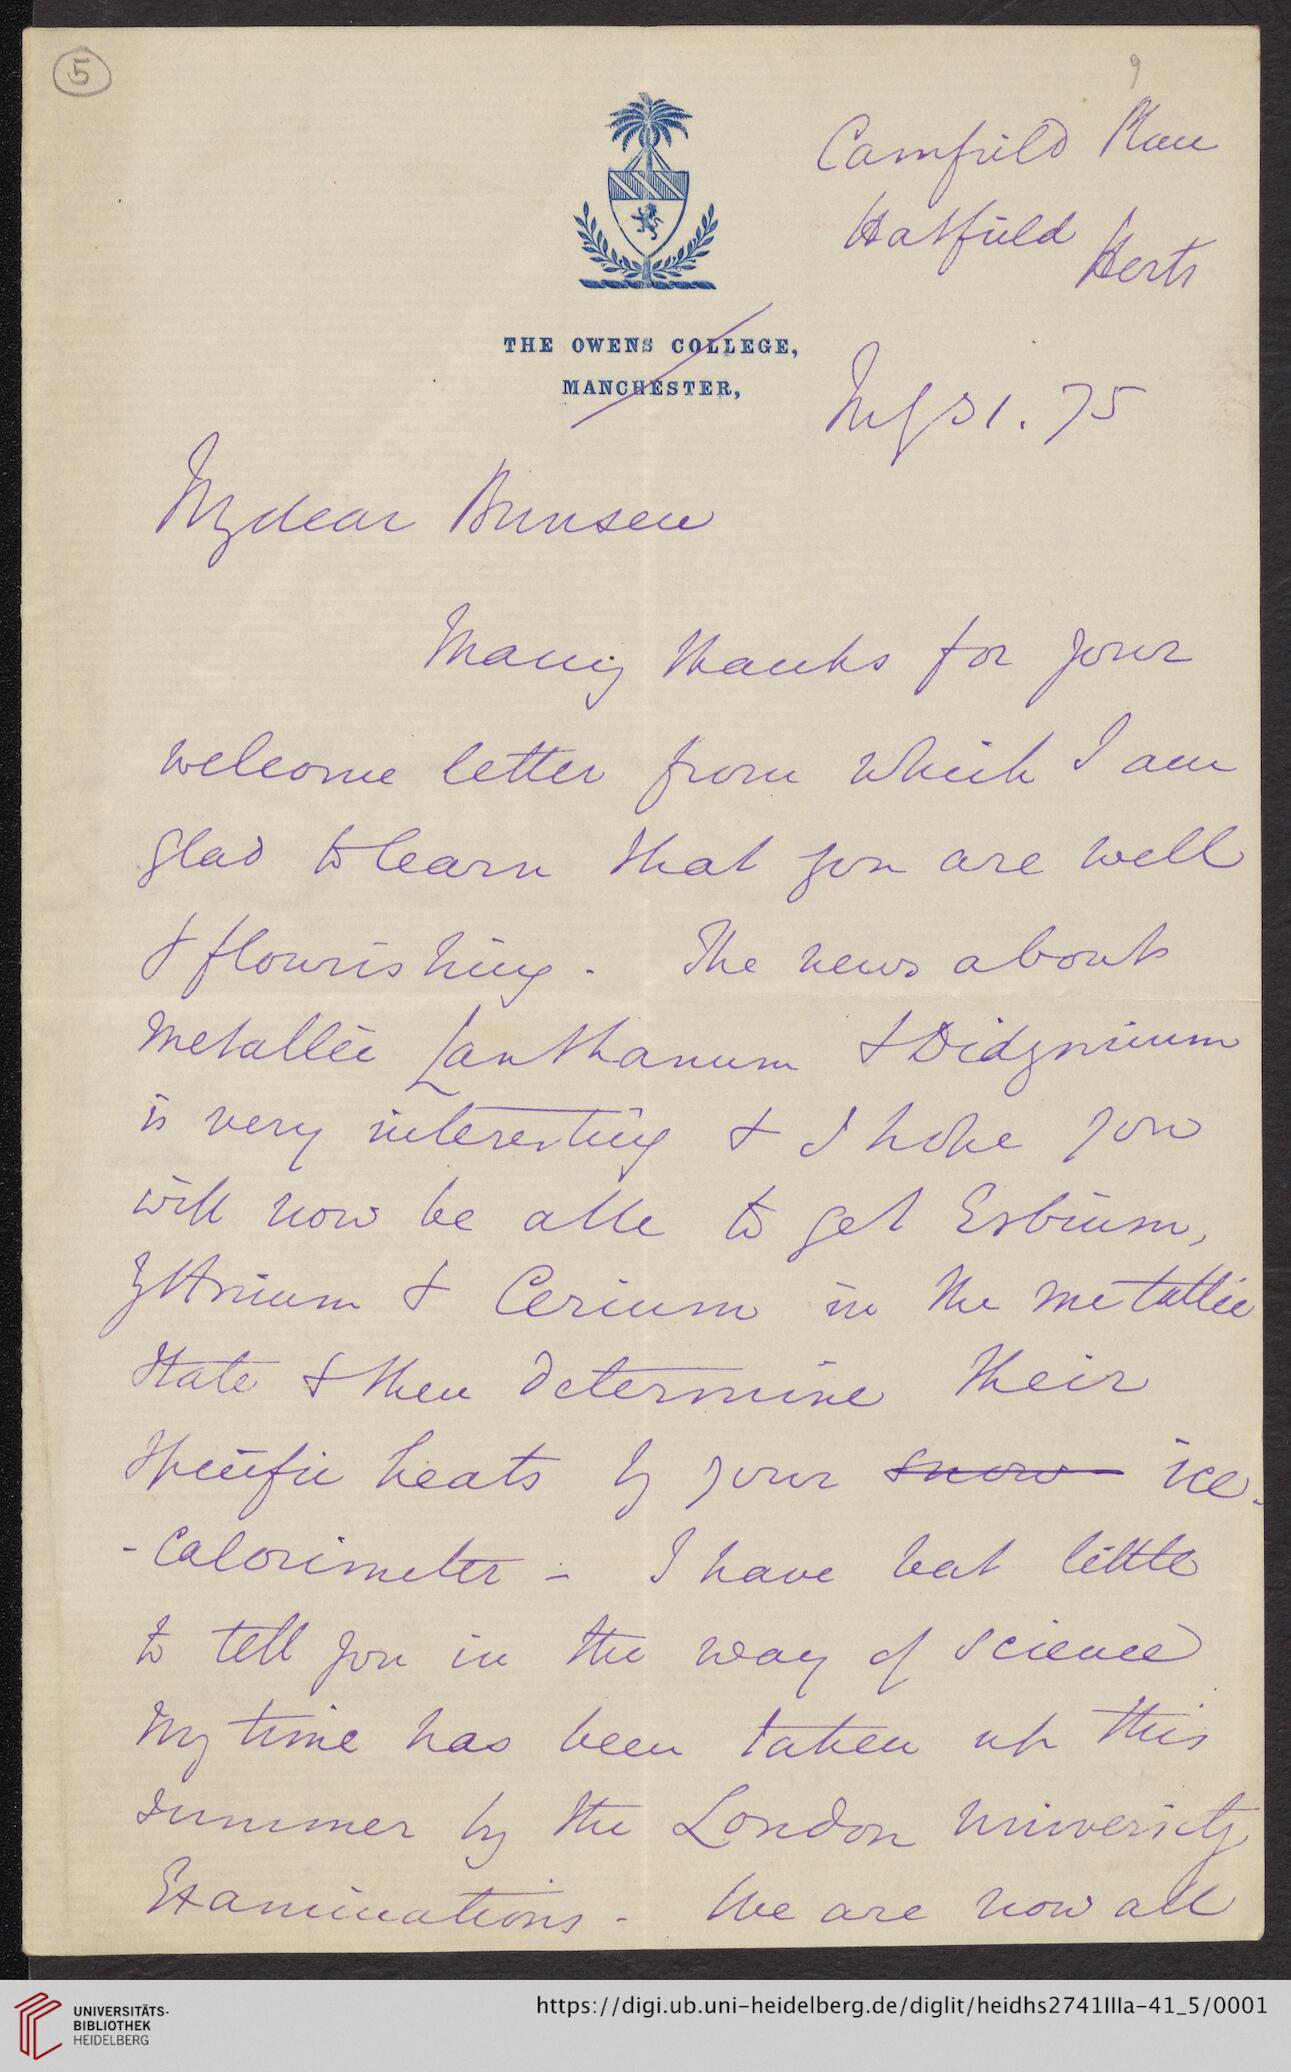 5
9
Camfield Place
Hatfield
Herts
THE OWENS COLLEGE,
MANCHESTER,
July 31. 75
My dear Bunsen
Many thanks for your
welcome letter from which I am
glad to learn that you are well
& flourishing - The news about
metallic Lanthanum & Didymium
is very interesting & I hope you
will now be able to get Erbium,
Yttrium & Cerium in the metallic
state & then determine their
specific heats by your snow ice-
-calorimeter - I have but little
to tell you in the way of science
My time has been taken up this
summer by the London University
Examinations - We are now all
UNIVERSITÄTS-
BIBLIOTHEK
HEIDELBERG
https://digi.ub.uni-heidelberg.de/diglit/heidhs2741IIIa-41_5/0001